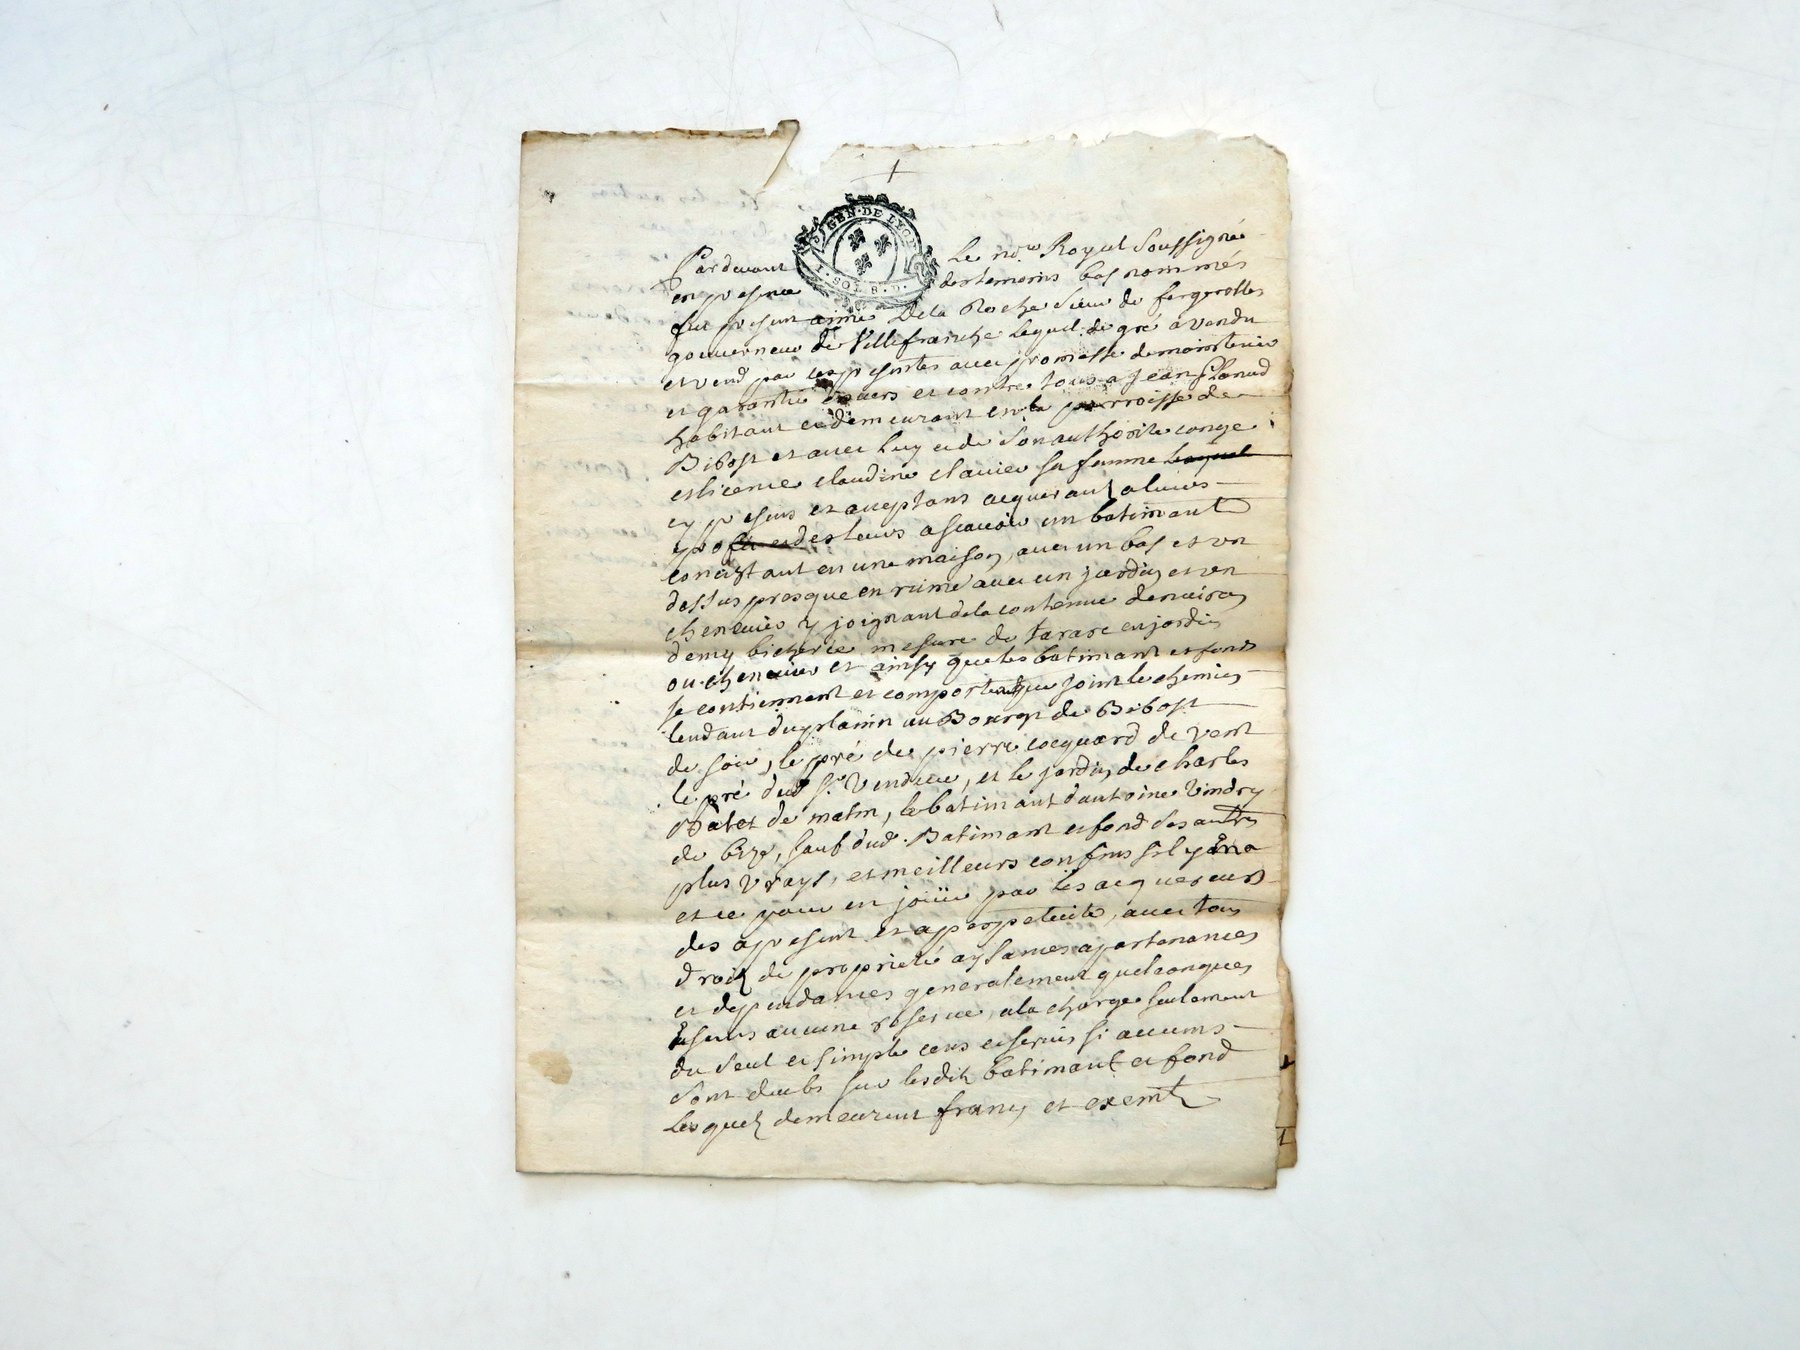 GEN·DE LYON
I·SOL 8·D·
Pardevant Le no.re Royal Soussigné
en presence des temoins bas nommés
fut present aimé Dela Roche Sieur de fargerolles
gouverneur de Villefranche lequel de gré a vendu
et vend par ces presentes avec promesse de maintenir
et garantir envers et contre tous a Jean
habitant et demeurant en la parroisse de
Bibost et avec luy et de son authorité conge
et licence claudine clavier sa femme lequel
cy presens et acceptans acquerant a leurs
profit et des leurs a scavoir un batimant
concistant en une maison, avec un bas et un
dessus presque en ruine avec un jardin et un
chenevier y joignant de la contenue denviron
demy bicherée mesure de tarare en jardin
ou chenevier et ainsy que les batimant et fonds
se contiennent et comportent que joint le chemin
tendant du plainin au Bourgt de Bibost
de soir, le pré de pierre cocquard de vent
le pré dud. Sr. Vendeur, et le jardin de charles
de matin, le batimant dantoine Vindry
de bize, sauf dud. Batimant et fond ses autres
plus vrays, et meilleurs confins sil y en a
et ce pour en jouir par les acquereurs
des a present et a perpetuité, avec tous
droits de proprieté aysances apartenances
et dependances generalement quelconques
sans aucune reserve, a la charge seulement
du seul et simple cens et servis si aucuns
sont deubs sur lesdits batimant et fond
lesquels demeurent francs et exempts